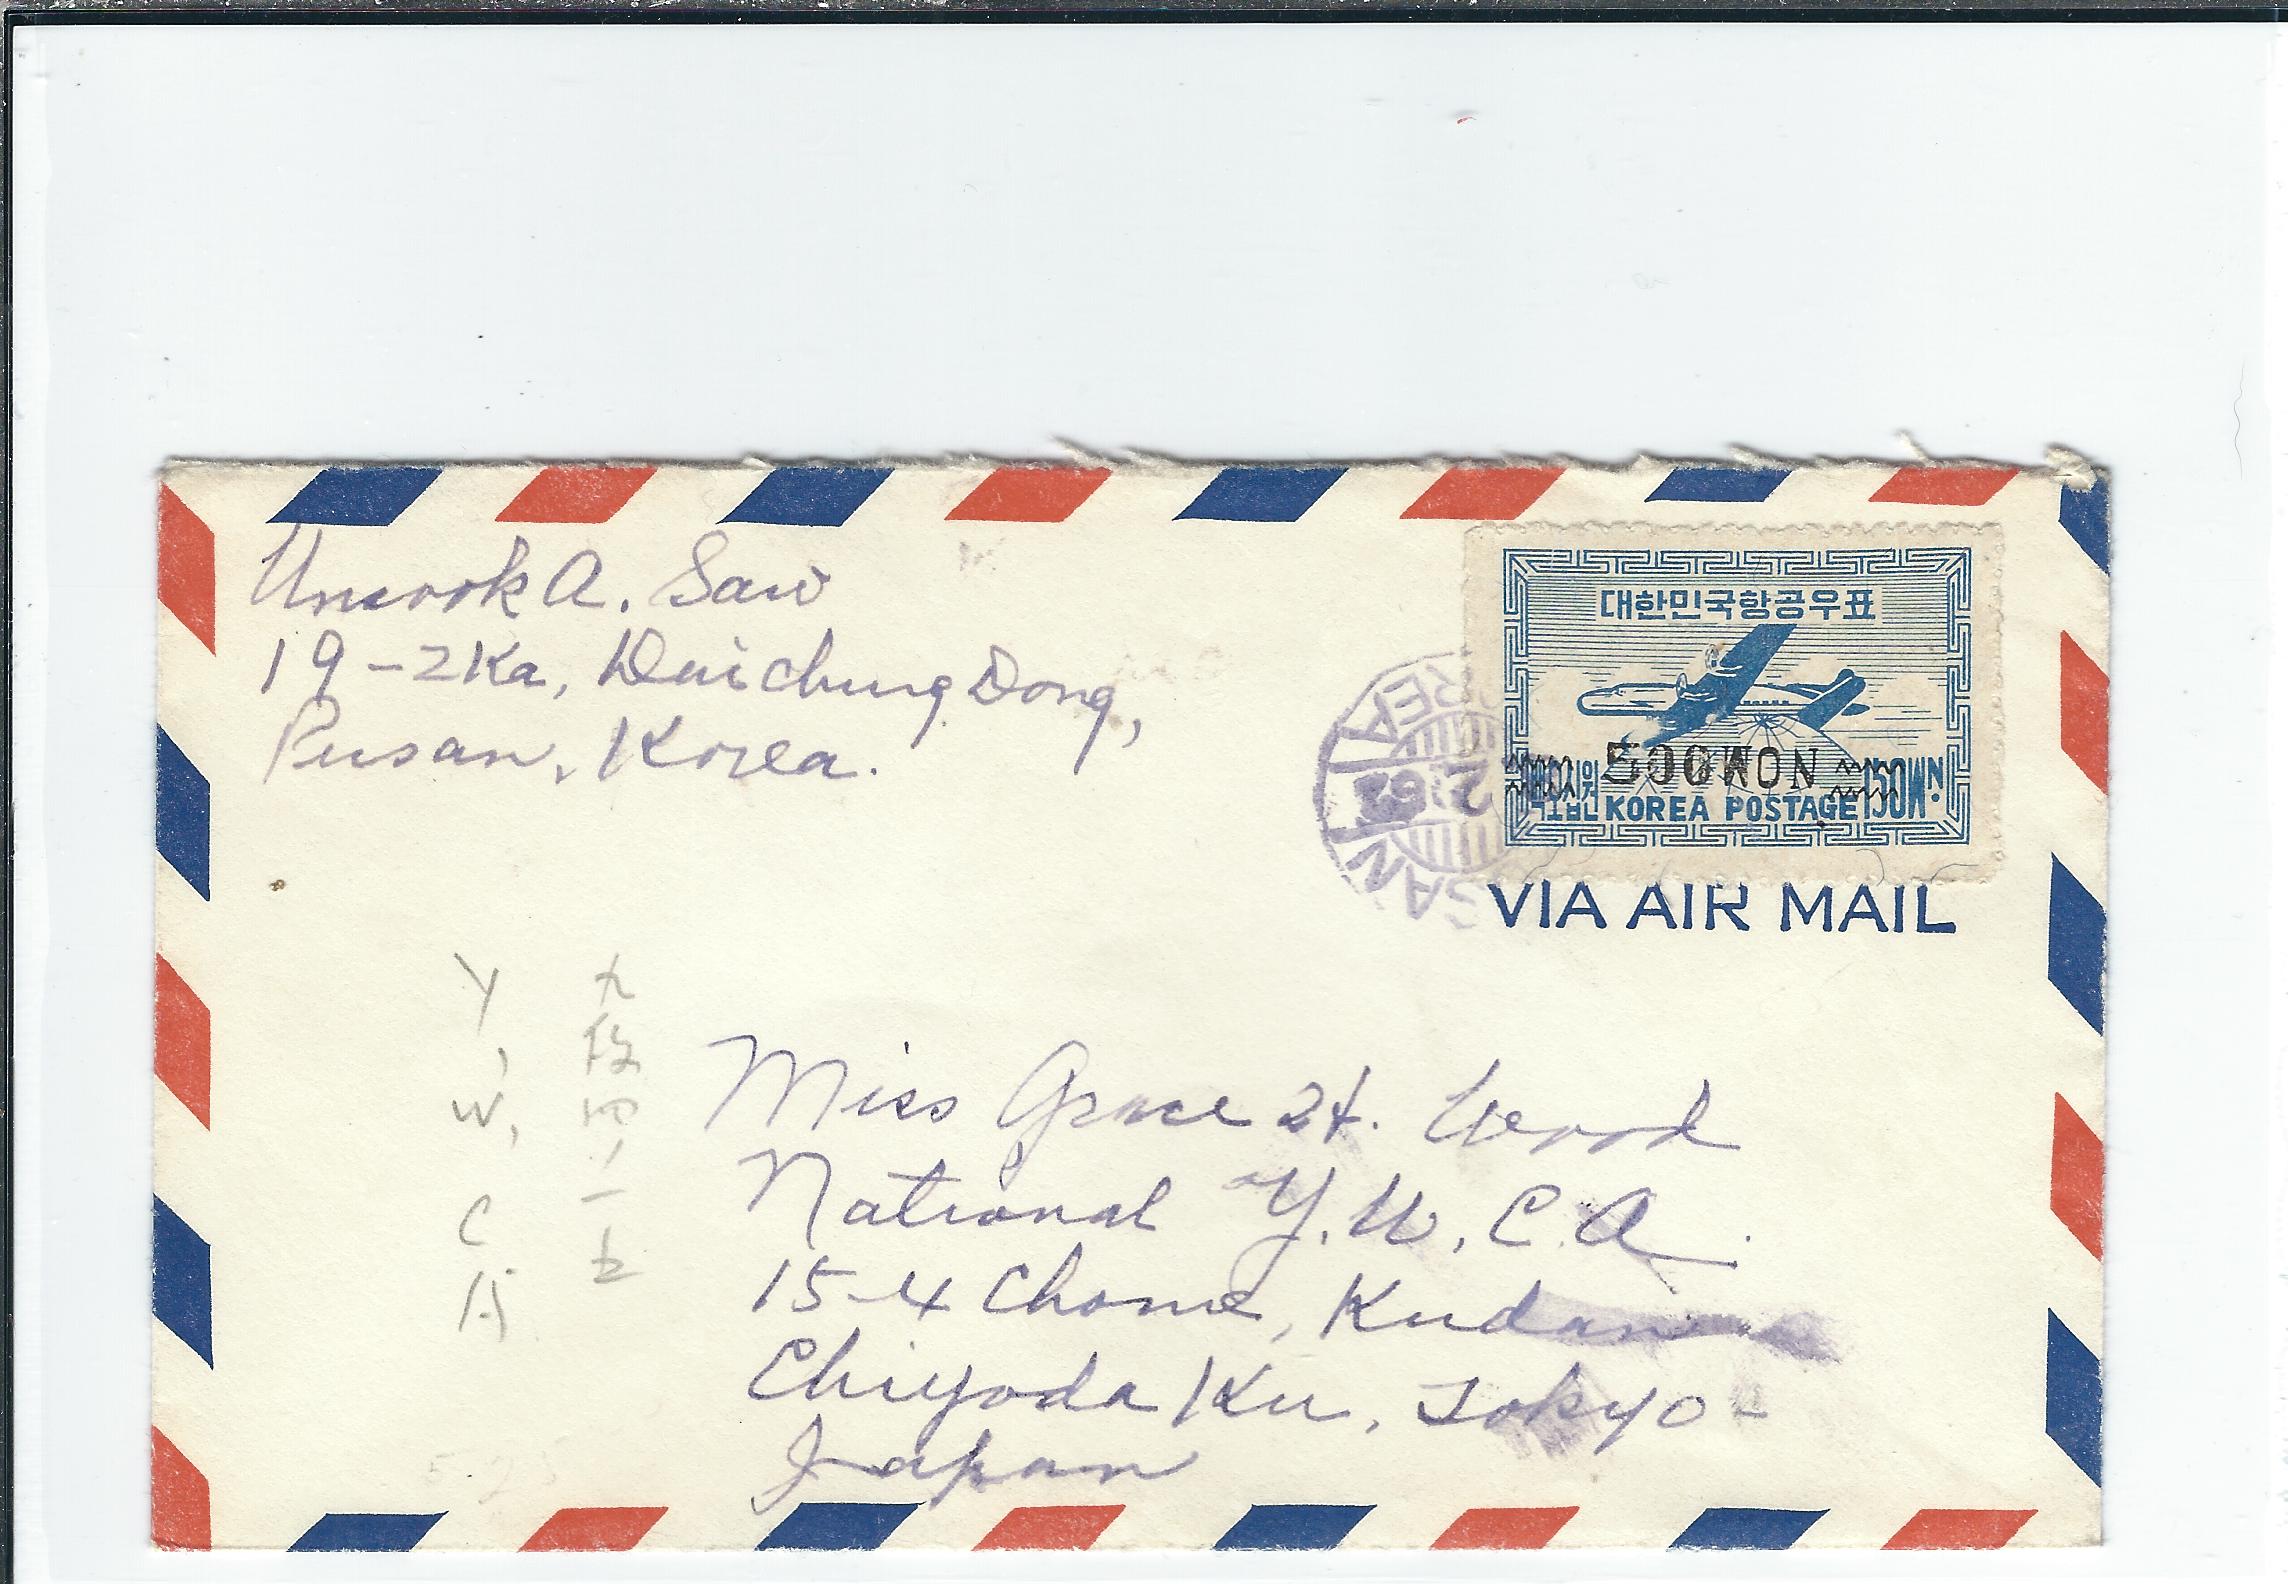 Unsook A. Saw
19-2Ka, Daichung Dong,
Pusan, Korea.
대한민국항공우표
500WON
KOREA POSTAGE 150WN.
REA
SAN
VIA AIR MAIL
Y,
W,
C
A
Miss Grace H. Wood
National Y.W.C.A.
15-4 Chome, Kudan
Chiyoda Ku, Tokyo-
Japan